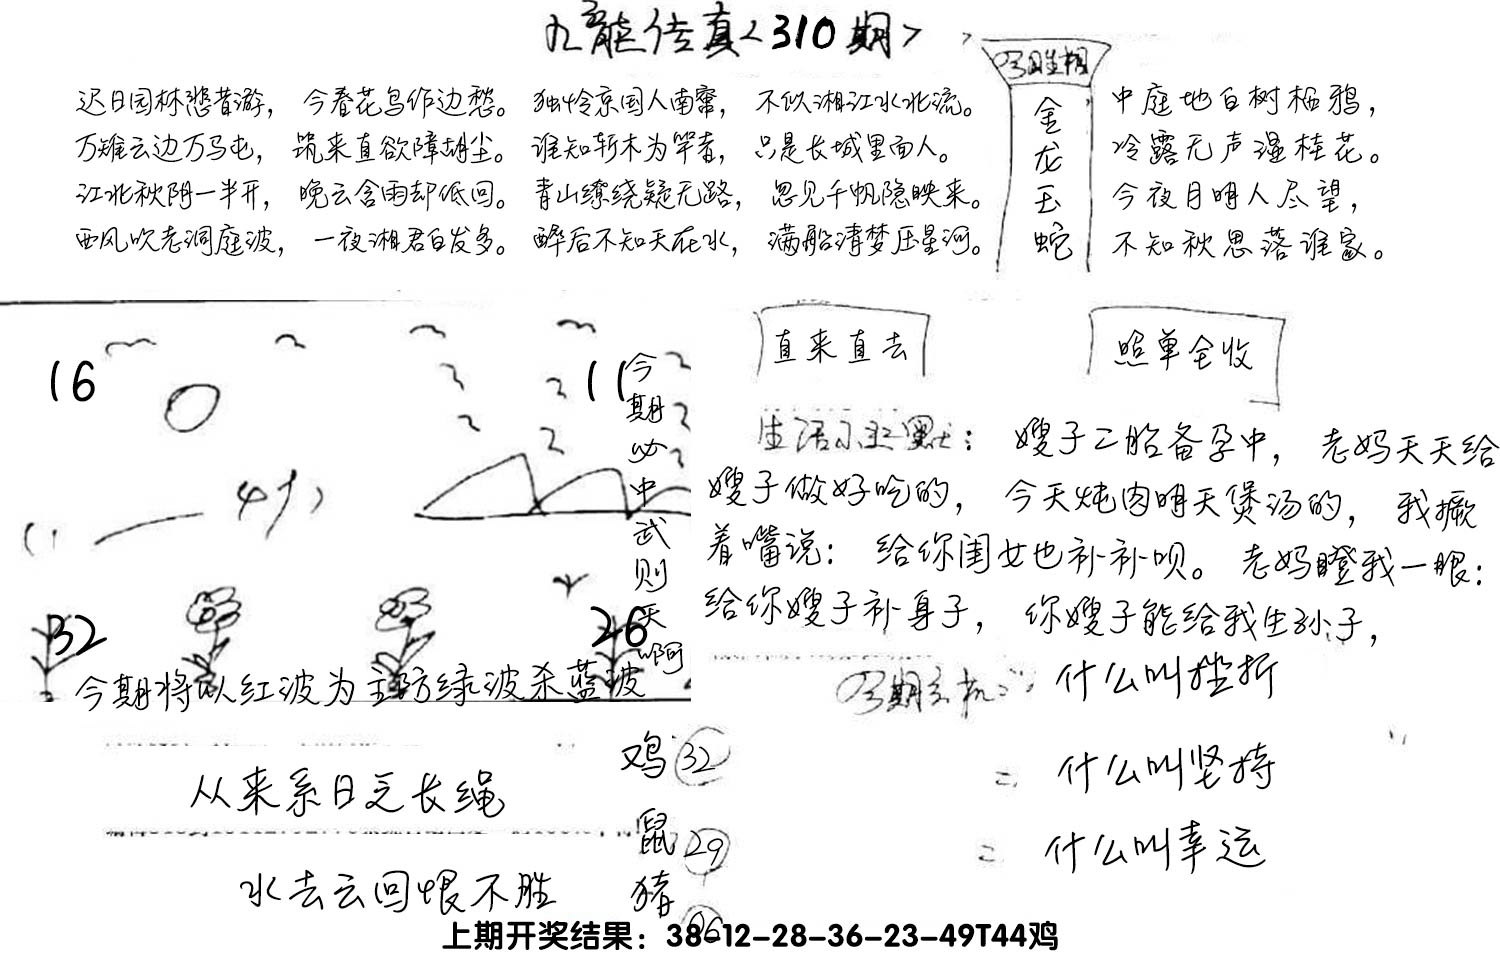 九龙传真<310期>
今期生相
迟日园林悲昔游，今春花鸟作边愁。独怜京国人南窜，不似湘江水北流。
万雉云边万马屯，筑来直欲障胡尘。谁知斩木为竿者，只是长城里面人。
江北秋阴一半开，晚云含雨却低回。青山缭绕疑无路，忽见千帆隐映来。
西风吹老洞庭波，一夜湘君白发多。醉后不知天在水，满船清梦压星河。
金龙玉蛇
中庭地白树栖鸦，
冷露无声湿桂花。
今夜月明人尽望，
不知秋思落谁家。
16
11
今期必中武则天啊
32
26
今期将以红波为主防绿波杀蓝波
直来直去
照单全收
生活小幽默：嫂子二胎备孕中，老妈天天给
嫂子做好吃的，今天炖肉明天煲汤的，我撅
着嘴说：给你闺女也补补呗。老妈瞪我一眼：
给你嫂子补身子，你嫂子能给我生孙子，
今期玄机
什么叫挫折
二
什么叫坚持
二
什么叫幸运
从来系日乏长绳
水去云回恨不胜
鸡 32
鼠 29
猪 06
上期开奖结果：38-12-28-36-23-49T44鸡